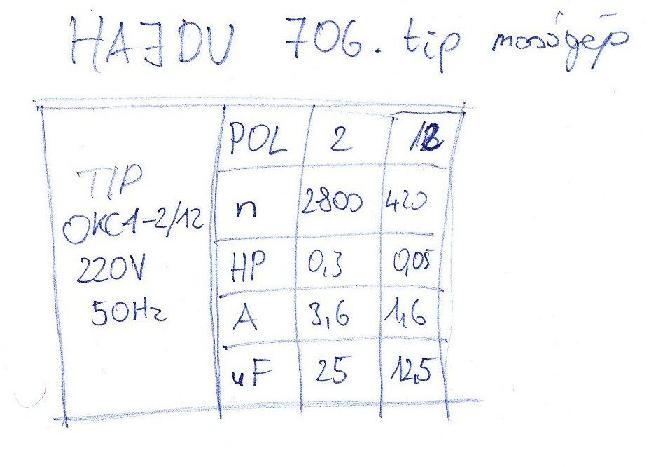 HAJDU 706. tip mosógép
POL 2 12
TIP
OKC1-2/12
220V
50Hz
n 2800 420
HP 0,3 0,05
A 3,6 1,6
uF 25 12,5